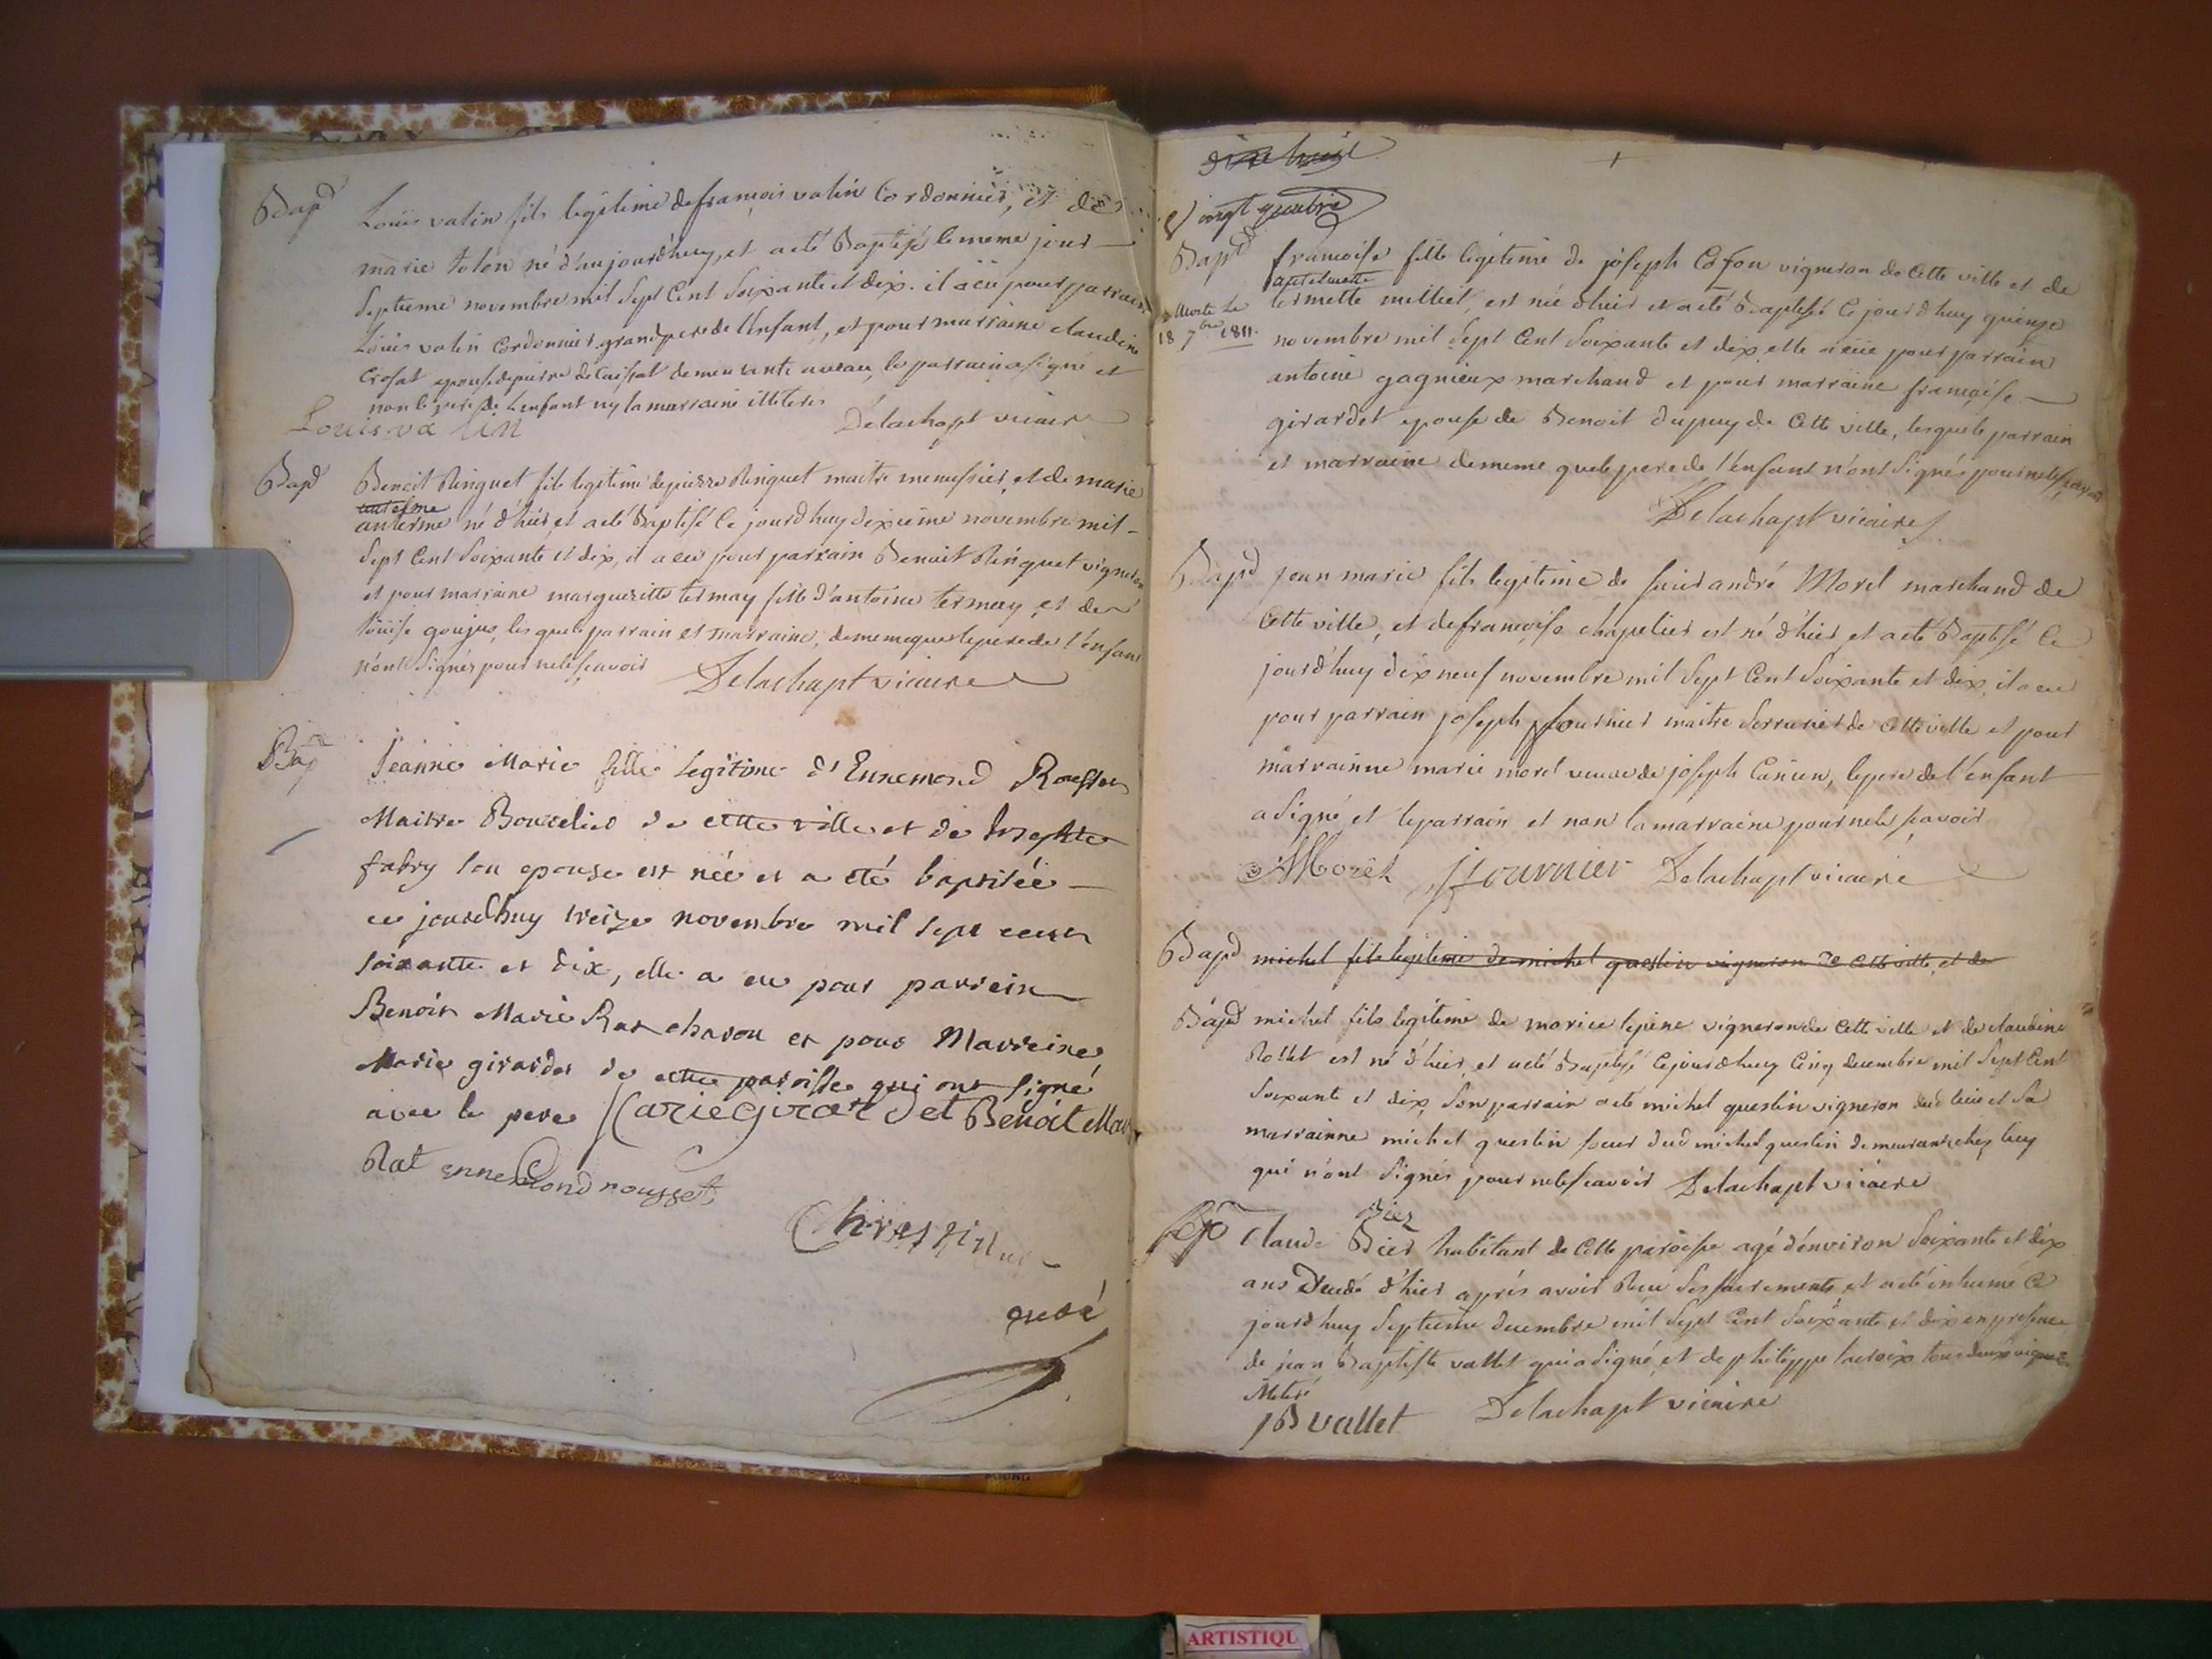 Bapd Louis valin fils legitime de françois valin Cordonnier, et de
marie tolon né d'aujourd'huy, et a eté Baptisé le meme jour
septieme novembre mil sept Cent soixante et dix. il a eü pour parrain
Louis valin Cordonnier grandpere de l'enfant, et pour marraine claudine
Crosat epouse de pierre de demeurante a veau, le parrain a signé et
non le pere de l'enfant ny la marraine illiteres
Louis va lin Delachapt vicaire
Bapd Benoit Ringuet fils legitime de pierre Ringuet maitre menuisier, et de marie
antelme
anterme né d'hier, et a eté Baptisé Ce jourd'huy dixieme novembre mil
sept Cent soixante et dix, il a eu pour parrain Benoit Ringuet vigneron
et pour marraine margueritte termay fille d'antoine termay et de
loüise goujus, lesquels parrain et marraine, de meme que le pere de l'enfant
n'ont signés pour ne le sçavoir Delachapt vicaire
Bap Jeanne Marie fille legitime d'Ennemond Rousset
Maitre Bourelier de cette ville et de Josephte
fabry son epouse est née et a eté baptisée
ce jourdhuy treize novembre mil sept cent
soixante et dix, elle a eu pour parrein
Benoit Marie Rat charon et pour Marreine
Marie girardet de cette paroisse qui ont signé
avec le pere Marie Girardet Benoit Mar
Rat ennemond rousset
curé
dixe huit
Vingt quatre
Bapd francoise fille legitime de joseph Cofon vigneron de Cette ville et de
termette milliet, est née d'hier et a eté Baptisée Ce jourd'huy quinze
Morte le
18 7bre 1811.
novembre mil sept Cent soixante et dix elle a eüe pour parrain
antoine gagnieux marchand et pour marraine françoise
girardet epouse de Benoit dupuy de Cette ville, lesquels parrain
et marraine de meme que le pere de l'enfant n'ont signés pour ne le sçavoir
Delachapt vicaire
Bapd jean marie fils legitime de sieur andré Morel marchand de
Cette ville, et de françoise chapelier est né d'hier et a eté Baptisé Ce
jourd'huy dix neuf novembre mil sept Cent soixante et dix, il a eu
pour parrain joseph fournier maitre serrurier de Cette ville et pour
marrainne marie morel veuve de joseph Canien, le pere de l'enfant
a signé et le parrain et non la marraine pour ne le sçavoir
Morêl ffournier Delachapt vicaire
Bapd michel fils legitime de michel questin vigneron de Cette ville, et de
Bapd michel fils legitime de morice lepine vigneron de Cette ville et de claudine
Rollet est né d'hier, et a eté Baptisé Cejourd'huy Cinq decembre mil sept Cent
soixante et dix, son parrain a eté michel questin vigneron dud lieu et sa
marrainne michel questin soeur dud michel questin demeurante chez luy
qui n'ont signés pour ne le scavoir Delachapt vicaire
Biez
Claude Bier habitant de Cette paroisse agé d'environ soixante et dix
ans decedé d'hier après avoir Receu ses sacrements, et a eté inhumé Ce
jourd'huy septieme decembre mil sept Cent soixante et dix en presence
de jean Baptiste vallet qui a signé, et de philippe lacroix tous deux vignerons
JB vallet Delachapt vicaire
ARTISTIQU